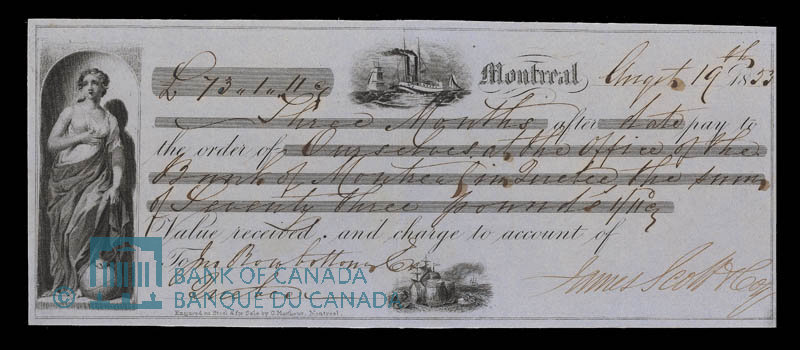 £ 73 " 1 " 11 Cy Montreal Augt 19th 1853
Three Months after date pay to
the order of Ourselves at the Office of the
Bank of Montreal in Quebec the sum
of Seventy three pounds 1/11 Cy
Value received, and charge to account of
To Jn Rowbottom Esq James Scott & Co
BANK OF CANADA
BANQUE DU CANADA
©
Engraved on Steel & for Sale by G. Matthews, Montreal.